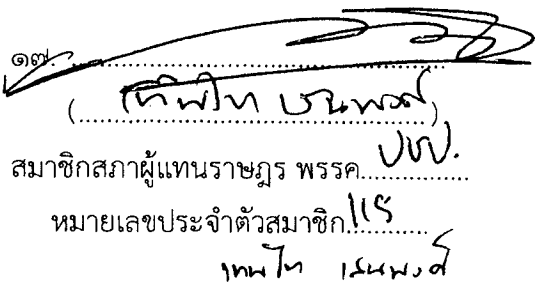 ๑๗.
(เทพไท เสนพงศ์)
สมาชิกสภาผู้แทนราษฎร พรรค ปชป.
หมายเลขประจำตัวสมาชิก 115
เทพไท เสนพงศ์